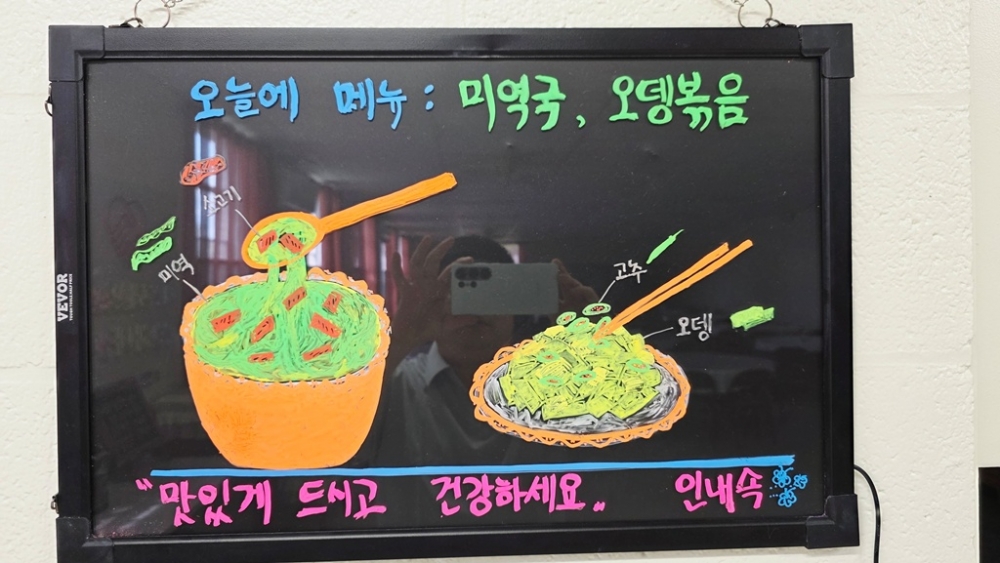 오늘에 메뉴 : 미역국, 오뎅볶음
쇠고기
미역
고추
오뎅
VEVOR
"맛있게 드시고 건강하세요" 인내속